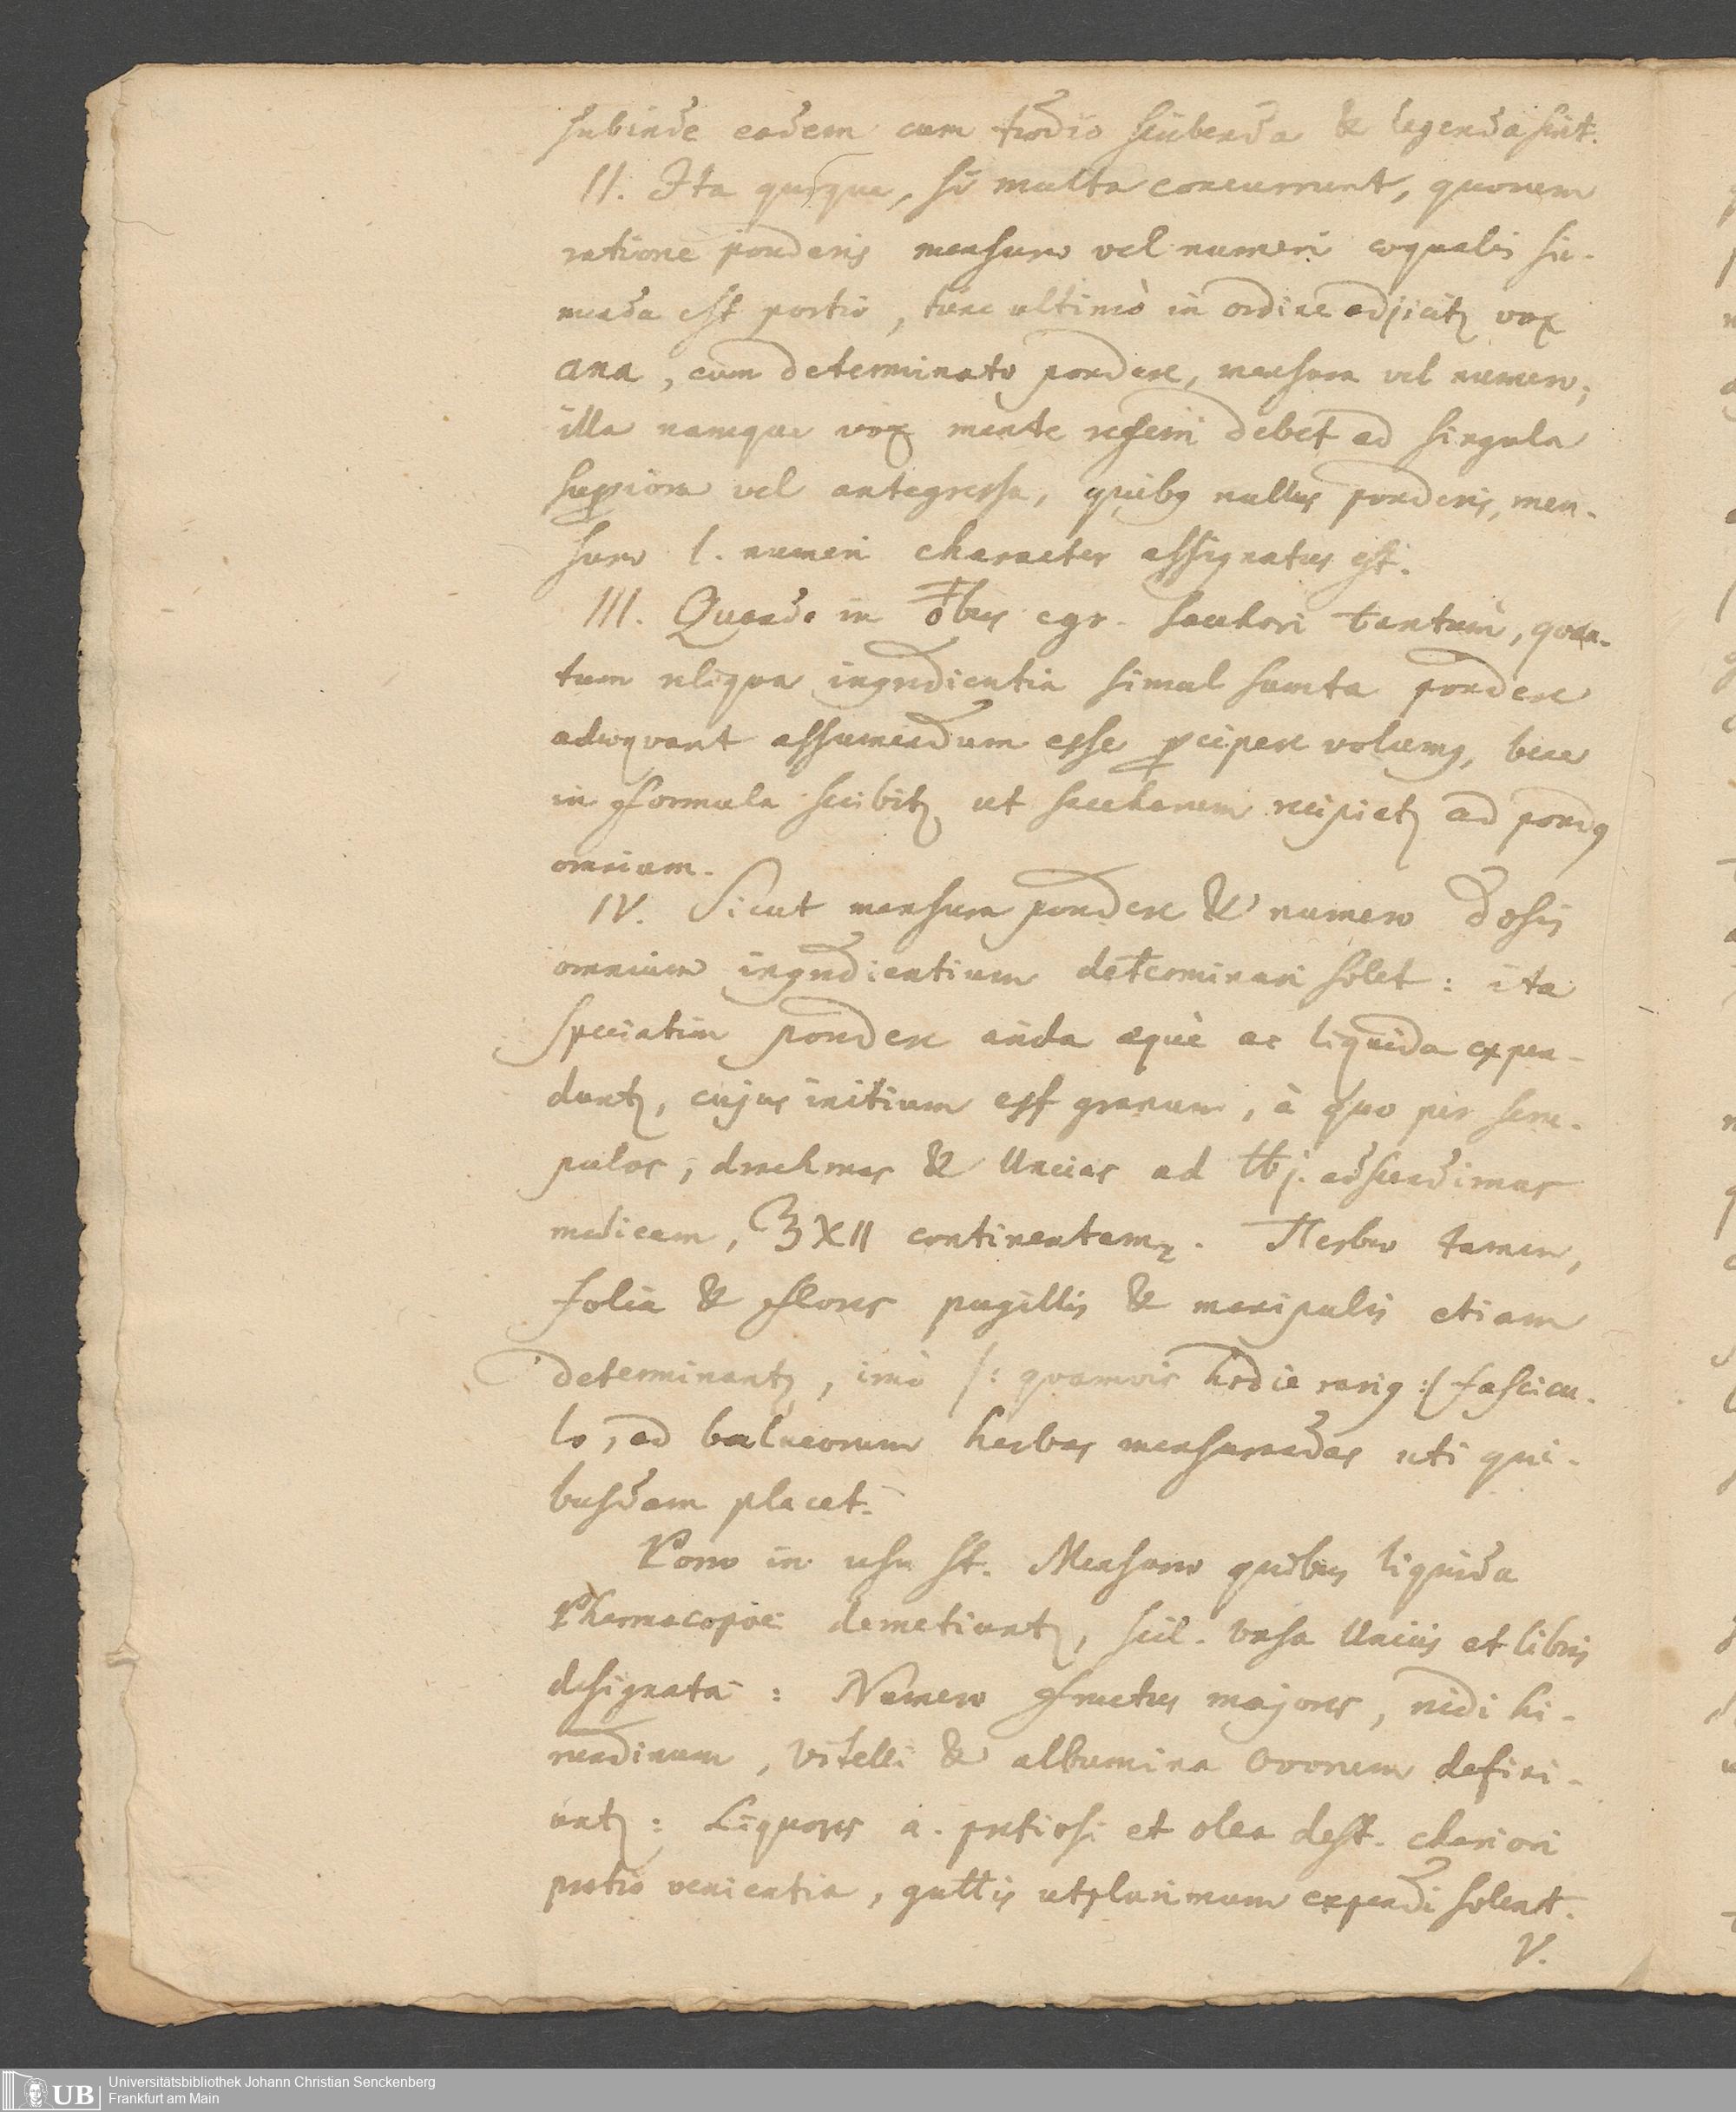 subinde eadem cum tædio scribenda & legenda sint.
II. Ita quoque, si multa concurrunt, quorum
ratione ponderis mensuræ vel numeri æqualis su-
menda est portio, tunc ultimò in ordine adjicitz vox
ana, cum determinato pondere, mensura vel numero;
illa namque vox mente referri debet ad singula
superiora vel antegressa, quibg nullus ponderis, men-
suræ l. numeri character assignatus est.
III. Quando in oibus egr. sacchari tantum, quan-
tum reliqua ingredientia simul sumta pondere
adæqvant assumendum esse pcipere volumg, bene
in formula scribitz ut saccharum recipiatz ad pondg
omnium.
IV. Sicut mensura pondere & numero dosis
omnium ingredientium determinari solet: ita
speciatim pondere arida æquè ac liquida expen-
duntz, cujus initium est granum, à quo per scru-
pulos, drachmas & Uncias ad ℔j. adscendimus
medicam, ℥XII continentem. Herbæ tamen,
folia & flores pugillis & manipulis etiam
determinantz, imò /: quamvis hodie rarig :/ fascicu-
lo, ad balneorum herbas mensurandas uti qui-
busdam placet.
Porro in usu st. Mensuræ quibus liquida
Pharmacopoei demetiuntz, scil. vasa Unciis et libris
designata: Numero fructus majores, nidi hi-
rundinum, vitelli & albumina ovorum defini-
untz: Liquores a. pretiosi et olea dest. chariori
pretio venientia, guttis utplurimum expendi solent.
V.
Universitätsbibliothek Johann Christian Senckenberg
Frankfurt am Main
UB